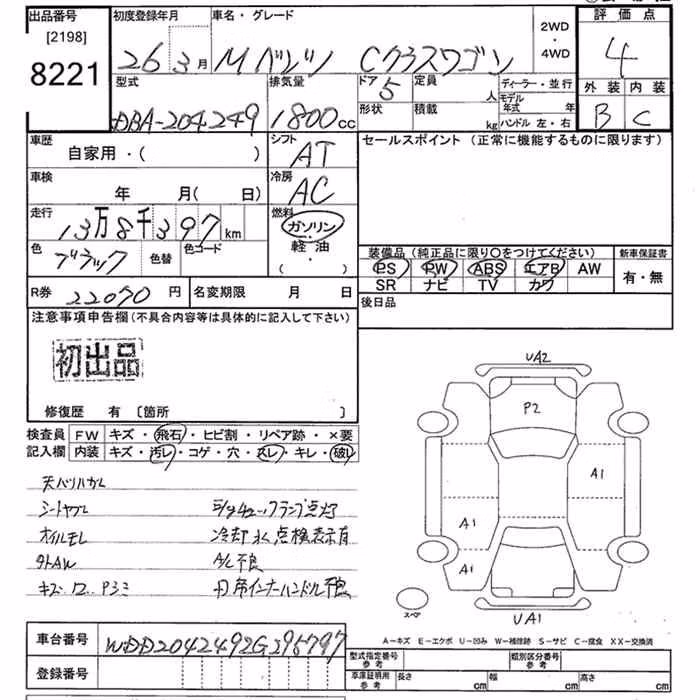 出品番号 初度登録年月 車名・グレード 2WD・4WD 評価点
[2198]
8221 26 3月 Mベンツ Cクラスワゴン 4
型式 排気量 ドア 定員 ディーラー・並行 外装 内装
DBA-204249 1800cc 5 人 モデル年式 年 B C
形状 積載 kg ハンドル 左・右
車歴 シフト セールスポイント (正常に機能するものに限ります)
自家用・( ) AT
車検 冷房
年 月( 日) AC
走行 燃料
13万8千397km ガソリン
色 色替 色コード 軽油
ブラック ( ・ )
装備品(純正品に限り○をつけてください) 新車保証書
PS PW ABS エアB AW 有・無
SR ナビ TV カワ
R券 22070円 名変期限 月 日 後日品
注意事項申告欄(不具合内容等は具体的に記入して下さい)
初出品
修復歴 有 〔箇所 〕
検査員 FW キズ・飛石・ヒビ割・リペア跡・×要
記入欄 内装 キズ・汚レ・コゲ・穴・スレ・キレ・破レ
天バリハガレ
シートヤブレ エンジンチェックランプ点灯
オイルモレ 冷却水点検表示有
タイトAW A/C不良
キズ P33 インナーハンドル不良
UA2
P2
A1
A1
A1
スペア
UA1
A-キズ E-エクボ U-凹み W-補修跡 S-サビ C-腐食 XX-交換済
車台番号 WDD2042492G296797
登録番号
型式指定番号 参考 類別区分番号 参考
車庫証明用 参考 長さ cm 幅 cm 高さ cm